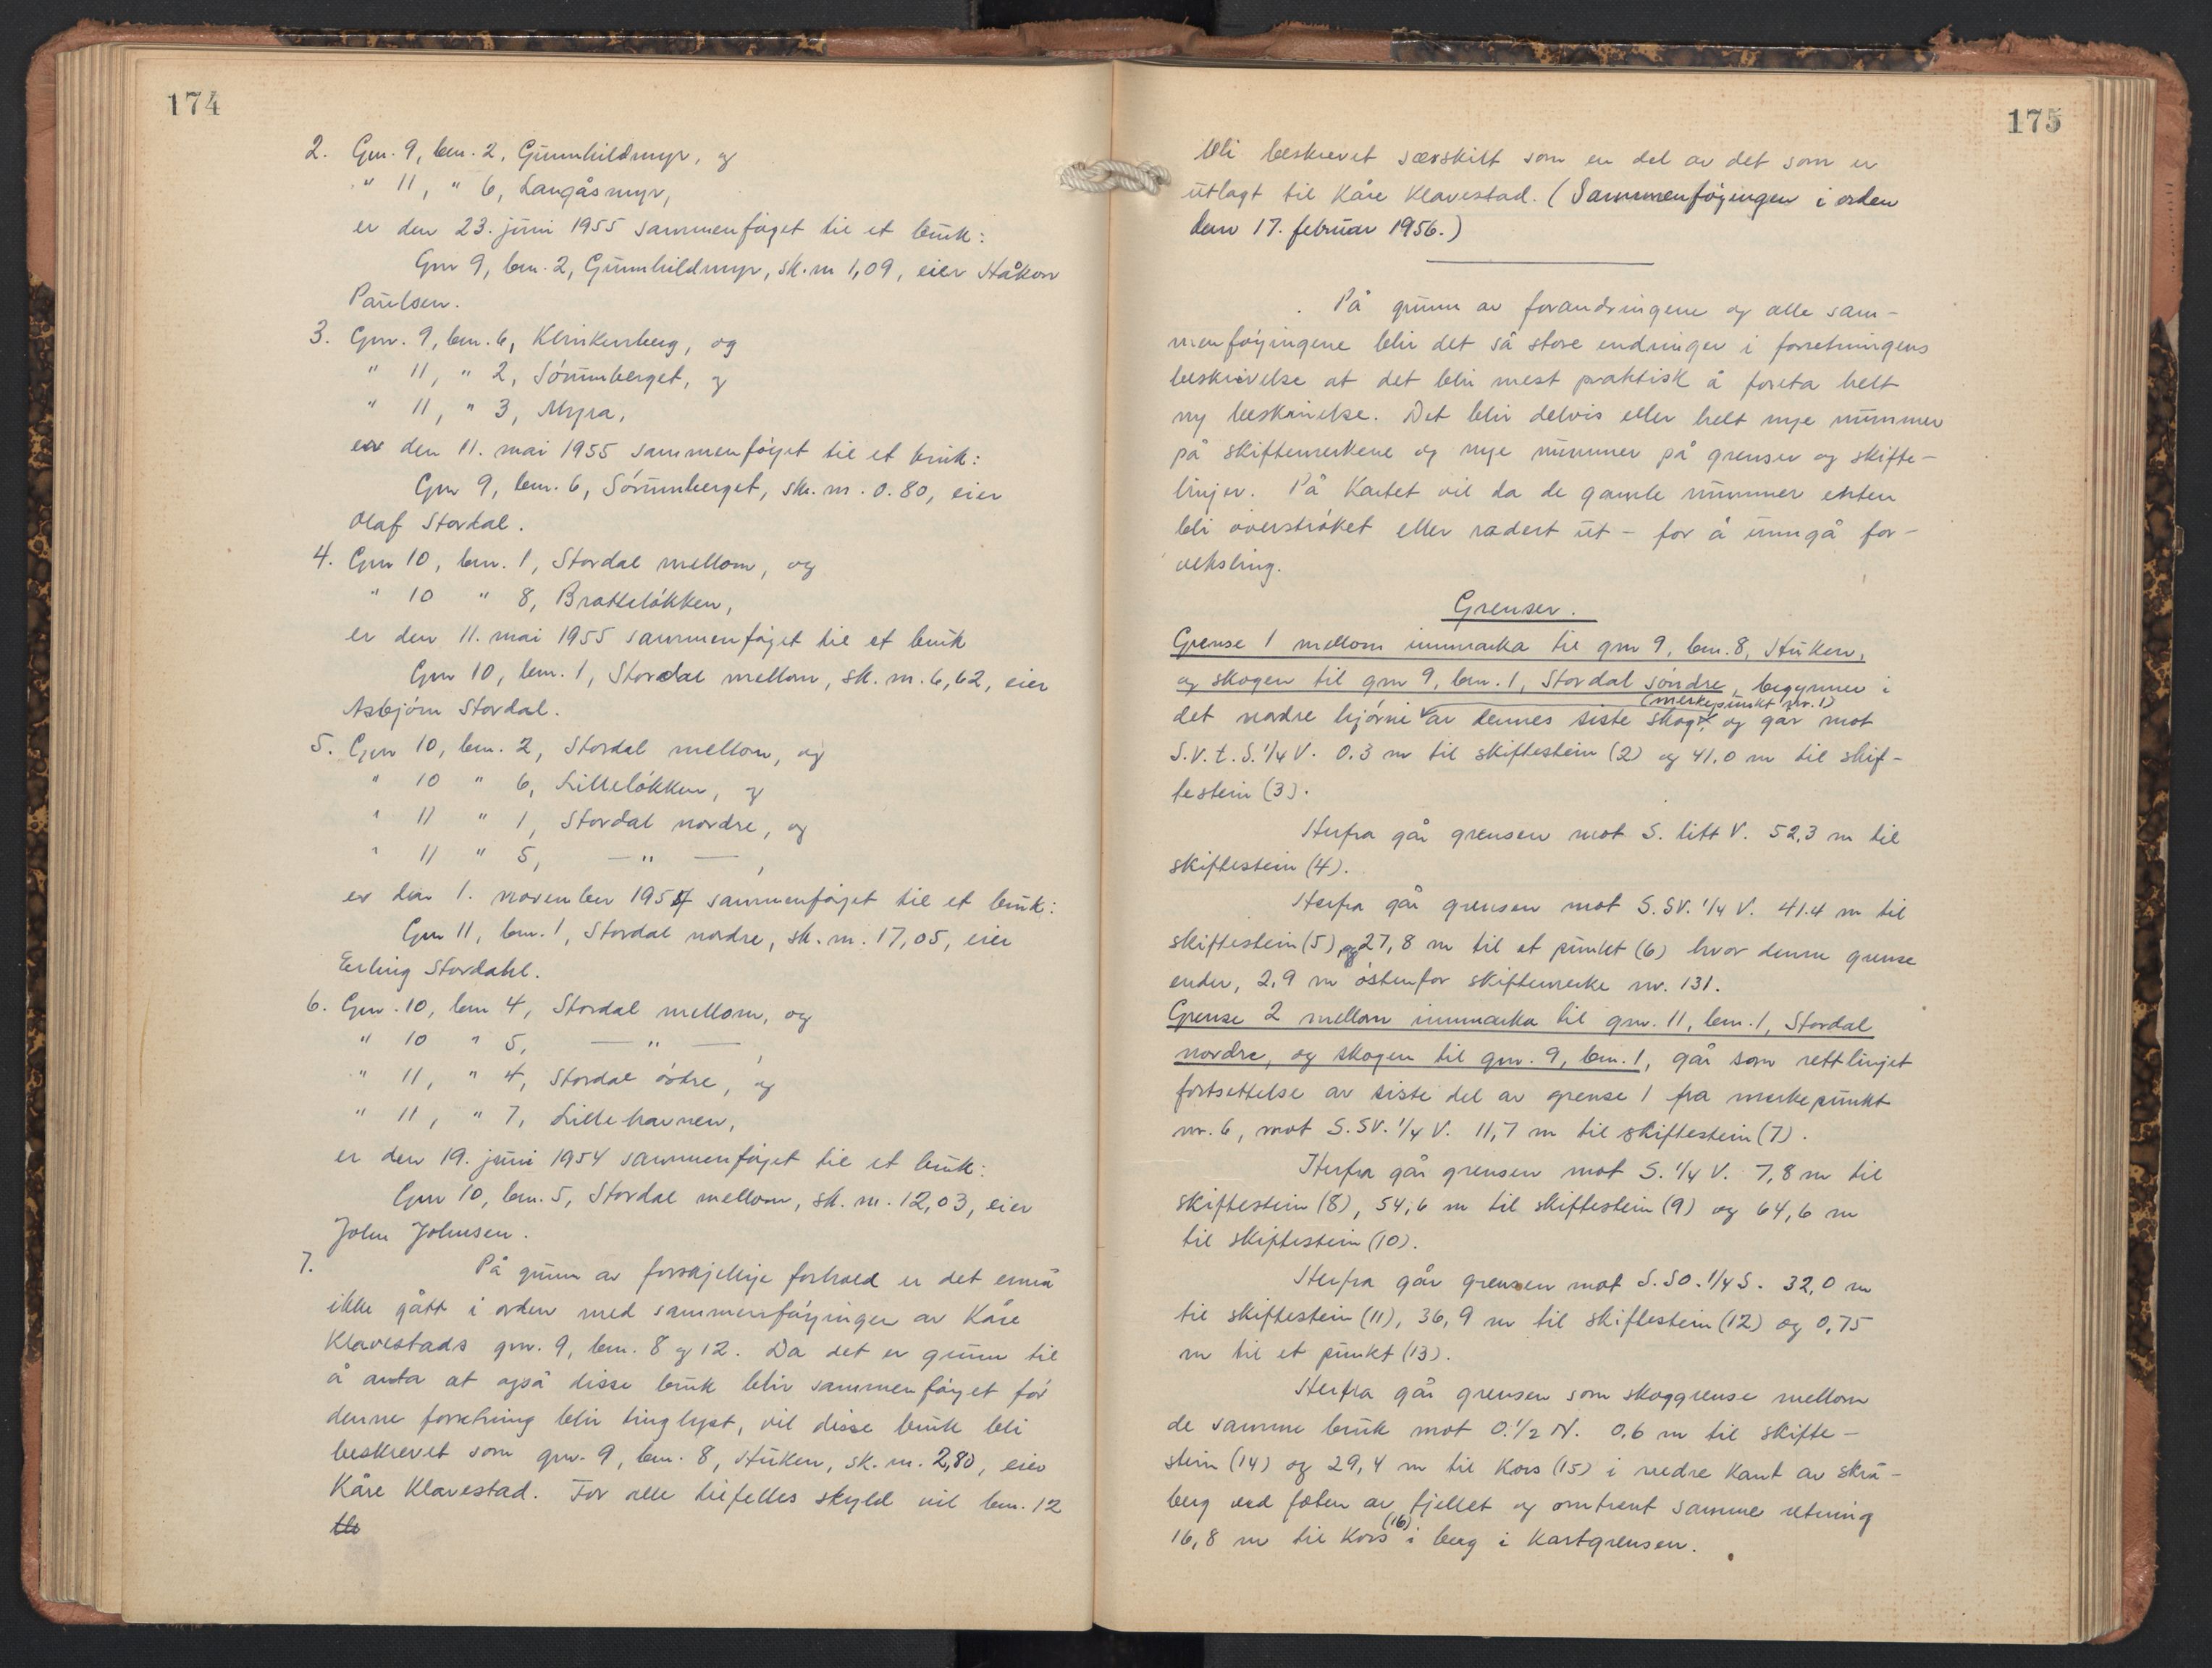 174
2. Gnr. 9, bnr. 2, Gunnhildmyr, og
" 11, " 6, Langåsmyr,
er den 23. juni 1955 sammenføyet til et bruk:
Gnr 9, bnr. 2, Gunnhildmyr, sk.m 1,09, eier Håkon
Paulsen.
3. Gnr. 9, bnr. 6, Klinkenberg, og
" 11, " 2, Sörumberget, og
" 11, " 3, Myra,
er den 11. mai 1955 sammenföyet til et bruk:
Gnr 9, bnr. 6, Sörumberget, sk. m. 0.80, eier
Olaf Stordal.
4. Gnr 10, bnr. 1, Stordal mellom, og
" 10 " 8, Bratteløkken,
er den 11. mai 1955 sammenføyet til et bruk
Gnr 10, bnr. 1, Stordal mellom, sk. m. 6,62, eier
Asbjörn Stordal.
5. Gnr 10, bnr. 2, Stordal mellom, og
" 10 " 6, Lilleløkken, og
" 11 " 1, Stordal nordre, og
" 11 " 5, — " — ,
er den 1. november 1954 sammenføyet til et bruk:
Gnr 11, bnr. 1, Stordal nordre, sk. m. 17,05, eier
Erling Stordahl.
6. Gnr. 10, bnr 4, Stordal mellom, og
" 10 " 5, — " — ,
" 11, " 4, Stordal östre, og
" 11, " 7, Lillehavnen,
er den 19. juni 1954 sammenføyet til et bruk:
Gnr 10, bnr. 5, Stordal mellom, sk. m. 12,03, eier
John Johnsen.
7. På grunn av forskjellige forhold er det ennå
ikke gått i orden med sammenføyingen av Kåre
Klavestads gnr. 9, bnr. 8 og 12. Da det er grunn til
å anta at også disse bruk blir sammenføyet før
denne forretning blir tinglyst, vil disse bruk bli
beskrevet som gnr. 9, bnr. 8, Huken, sk. m. 2,80, eier
Kåre Klavestad. For alle tilfelles skyld vil bnr. 12
175
bli beskrevet særskilt som en del av det som er
utlagt til Kåre Klavestad. (Sammenføyingen i orden
den 17. februar 1956.)
På grunn av forandringene og alle sam-
menføyingene blir det så store endringer i forretningens
beskrivelse at det blir mest praktisk å foreta helt
ny beskrivelse. Det blir delvis eller helt nye nummer
på skiftemerkene og nye nummer på grenser og skifte-
linjer. På kartet vil da de gamle nummer enten
bli overstrøket eller radert ut - for å unngå for-
veksling.
Grenser.
Grense 1 mellom innmarka til gnr 9, bnr. 8, Huken,
og skogen til gnr 9, bnr. 1, Stordal søndre, begynner i
(merkepunkt nr. 1)
det nordre hjørne av dennes siste skog, og går mot
S.V. t. S. 1/4 V. 0.3 m til skiftestein (2) og 41,0 m til skif-
testein (3).
Herfra går grensen mot S. litt V. 52,3 m til
skiftestein (4).
Herfra går grensen mot S.SV. 1/4 V. 41.4 m til
skiftestein (5) og 27,8 m til et punkt (6) hvor denne grense
ender, 2,9 m østenfor skiftemerke nr. 131.
Grense 2 mellom innmarka til gnr. 11, bnr. 1, Stordal
nordre, og skogen til gnr. 9, bnr. 1, går som rettlinjet
fortsettelse av siste del av grense 1 fra merkepunkt
nr. 6, mot S.SV. 1/4 V. 11,7 m til skiftestein (7).
Herfra går grensen mot S. 1/4 V. 7,8 m til
skiftestein (8), 54,6 m til skiftestein (9) og 64,6 m
til skiftestein (10).
Herfra går grensen mot S.SO. 1/4 S. 32,0 m
til skiftestein (11), 36,9 m til skiftestein (12) og 0,75
m til et punkt (13).
Herfra går grensen som skoggrense mellom
de samme bruk mot O. 1/2 N. 0.6 m til skifte-
stein (14) og 29,4 m til kors (15) i nedre kant av skrå-
berg ved foten av fjellet og omtrent samme retning
16,8 m til kors (16) i berg i kartgrensen.